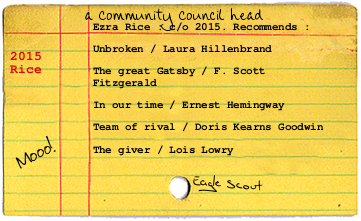 a community council head
Ezra Rice c/o 2015. Recommends :
2015
Rice
Unbroken / Laura Hillenbrand
The great Gatsby / F. Scott
Fitzgerald
In our time / Ernest Hemingway
Team of rival / Doris Kearns Goodwin
The giver / Lois Lowry
Mood.
Eagle Scout